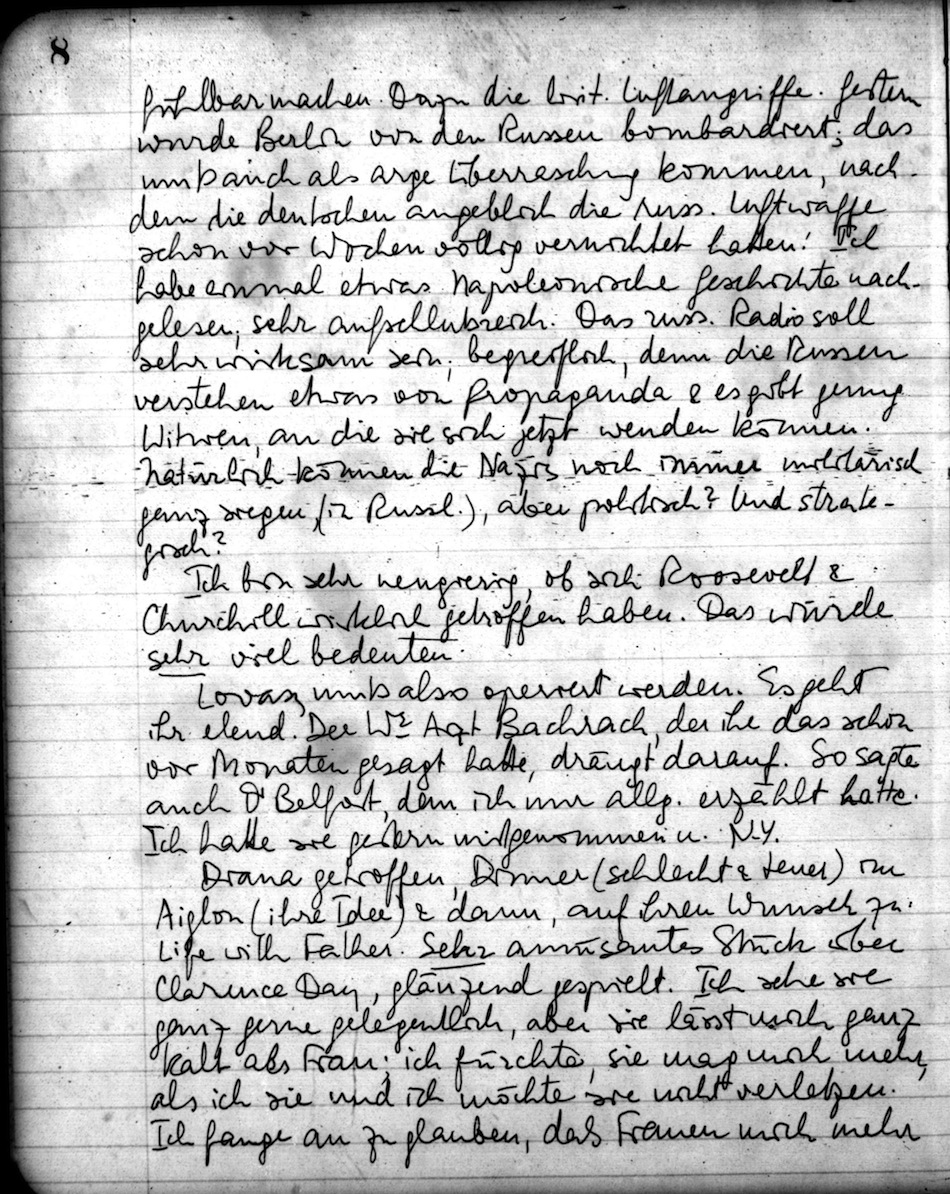 8
fühlbar machen. Dazu die brit. Luftangriffe. Gestern
wurde Berlin von den Russen bombardiert; das
muß auch als arge Überraschung kommen, nach-
dem die deutschen angeblich die russ. Luftwaffe
schon vor Wochen völlig vernichtet hatten! Ich
habe einmal etwas Napoleonische Geschichte nach-
gelesen; sehr aufschlußreich. Das russ. Radio soll
sehr wirksam sein; begreiflich, denn die Russen
verstehen etwas von Propaganda & es gibt genug
Witwen, an die sie sich jetzt wenden können.
Natürlich können die Nazis noch immer militärisch
ganz siegen (in Russl.), aber politisch? Und strate-
gisch?
Ich bin sehr neugierig, ob sich Roosevelt &
Churchill wirklich getroffen haben. Das würde
sehr viel bedeuten.
Lovasz muß also operiert werden. Es geht
ihr elend. Der Wr Arzt Bachrach, der ihr das schon
vor Monaten gesagt hatte, drängt darauf. So sagte
auch D'Belfort, dem ich nur allg. erzählt hatte.
Ich hatte sie gestern mitgenommen n. N.Y.
Diana getroffen, Dinner (schlecht & teuer) im
Aiglon (ihre Idee) & dann, auf ihren Wunsch zu
Life with Father. Sehr amüsantes Stück über
Clarence Day, glänzend gespielt. Ich sehe sie
ganz gerne gelegentlich, aber sie lässt mich ganz
kalt als Frau; ich fürchte, sie mag mich mehr,
als ich sie und ich möchte sie nicht verletzen.
Ich fange an zu glauben, daß Frauen mich mehr